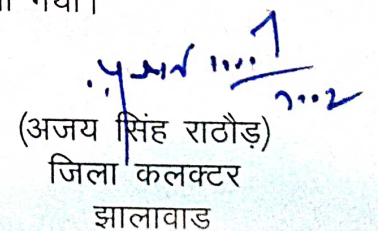 गया।
(अजय सिंह राठौड़)
जिला कलक्टर
झालावाड